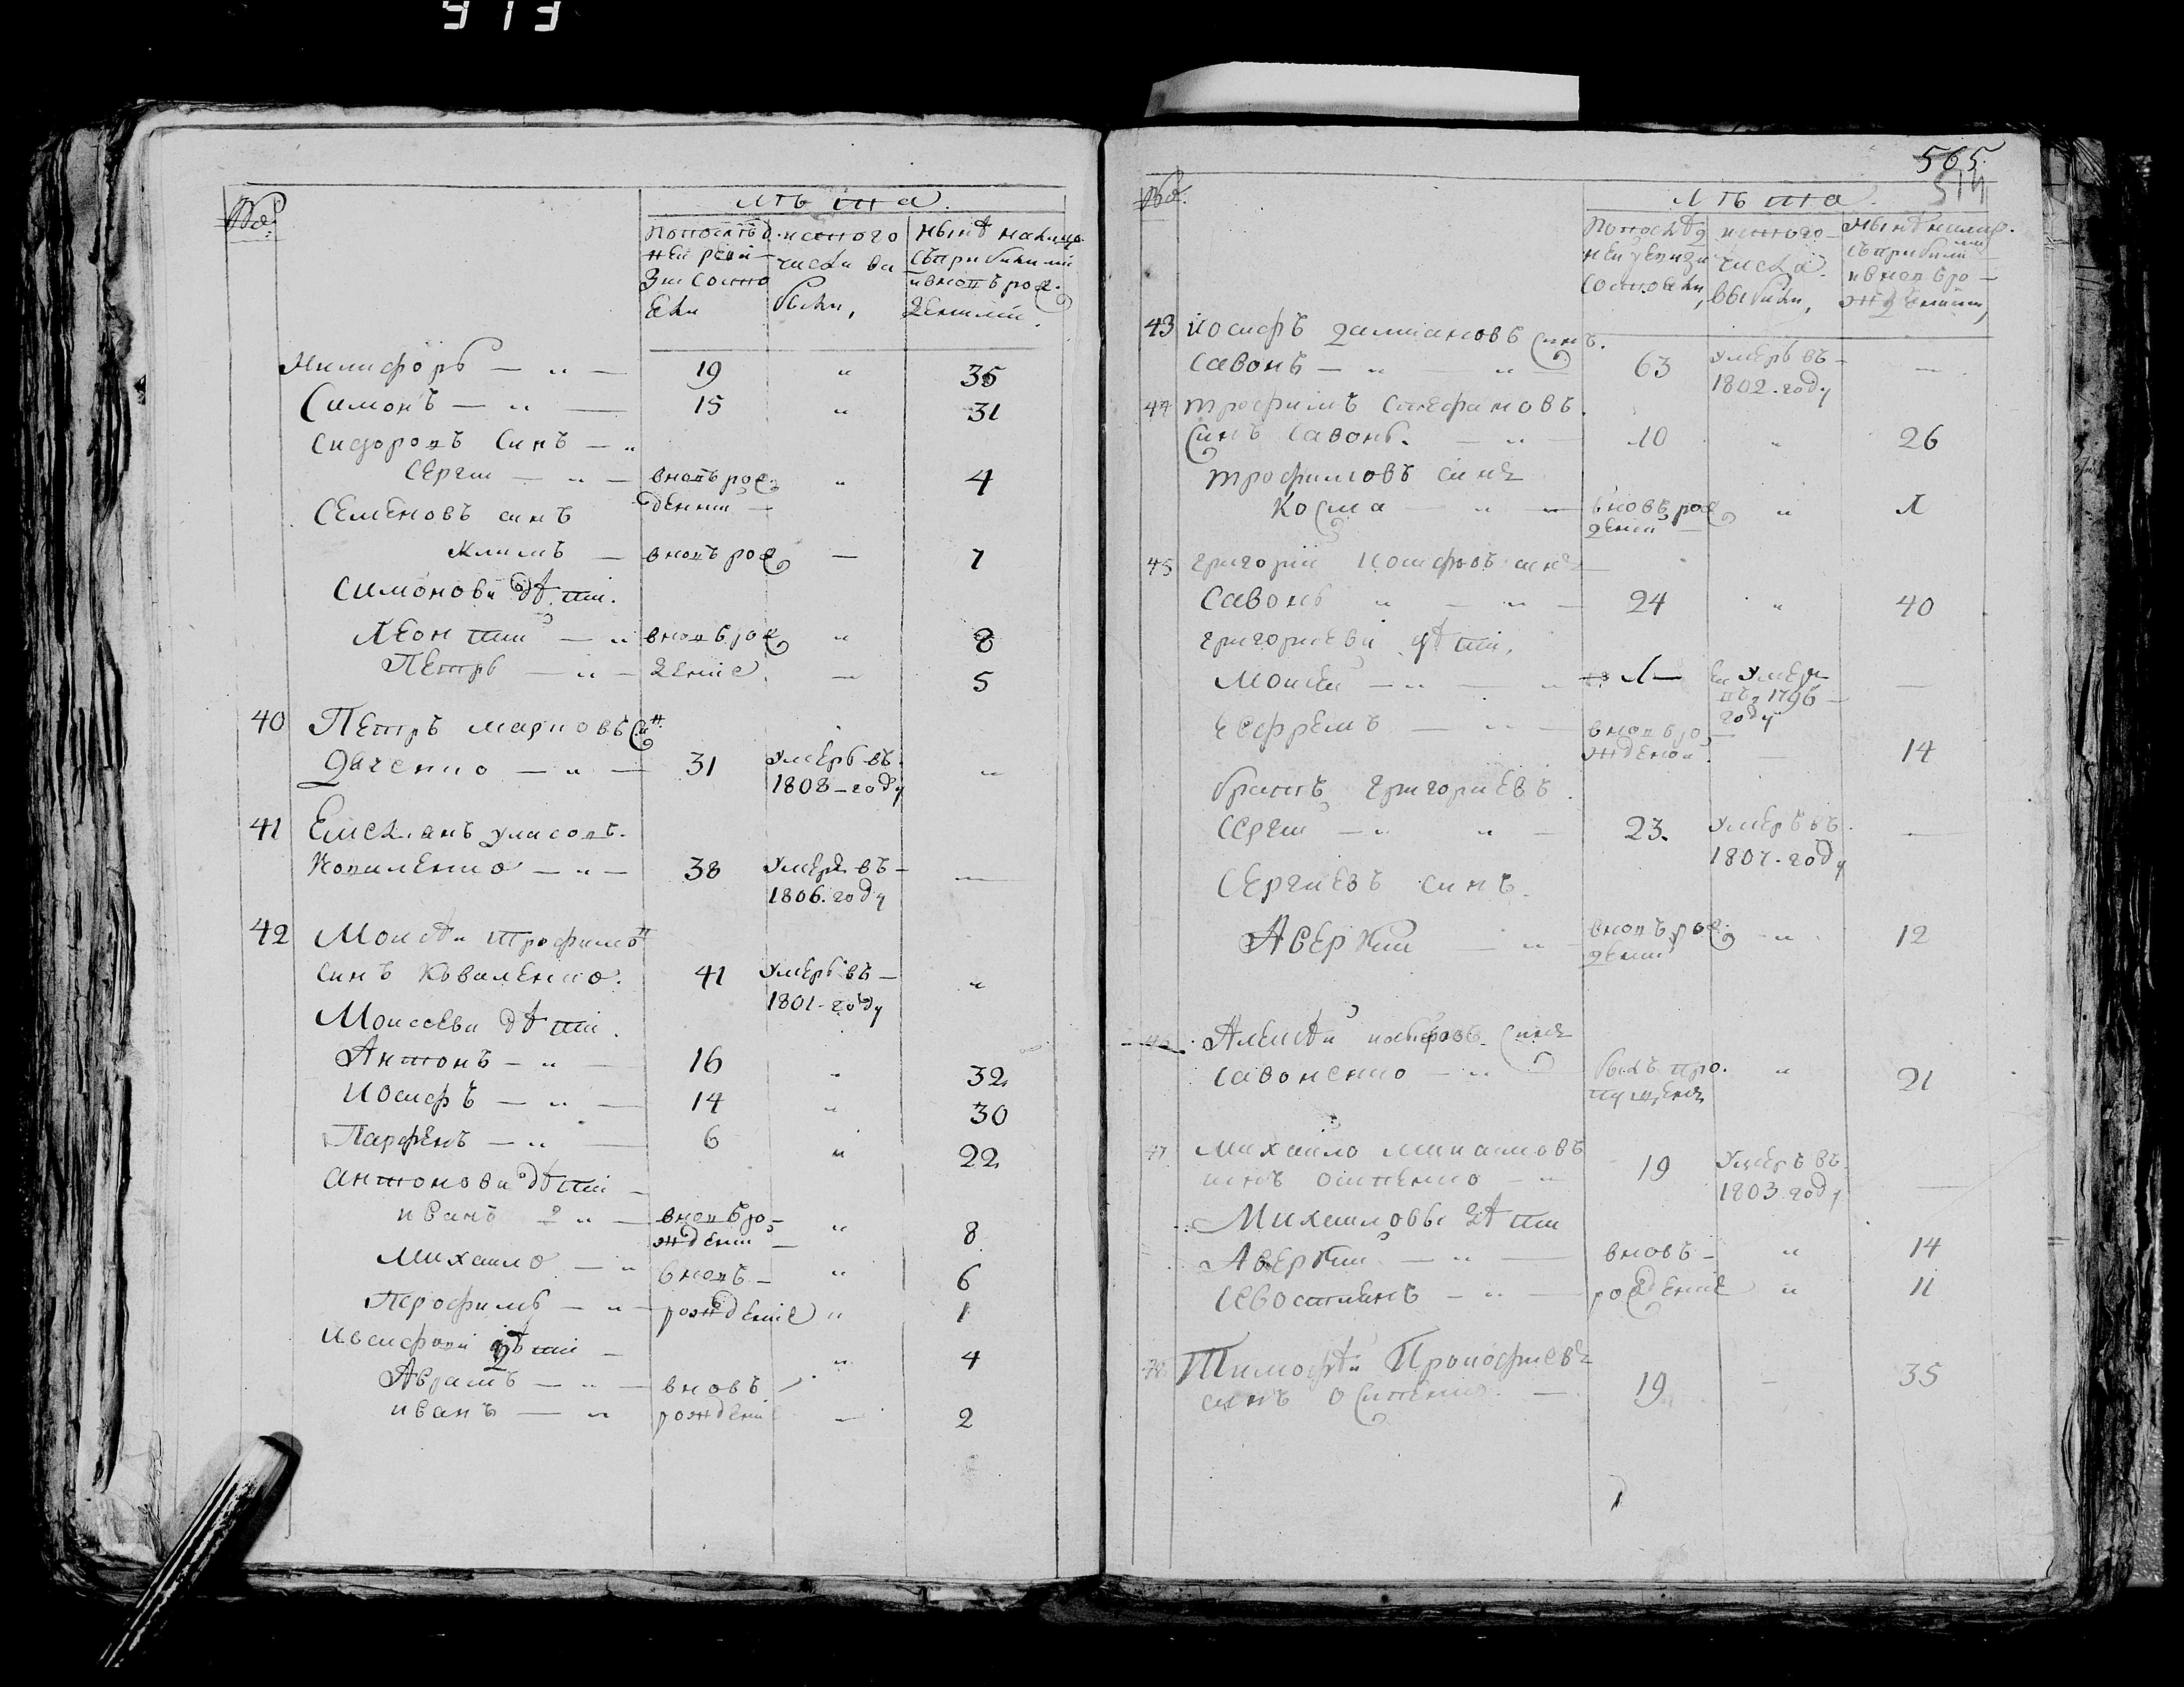 913
№
лѣта
По послѣд
ней реви
зіи состо
яли
изтого
числа вы
были,
нынѣ налицо
съприбылими
ивновь рож
денними.
Никифоръ — „ — 19 „ 35
Симонъ — „ — 15 „ 31
Сидоровъ синъ — „
Сергіи — „ — вновь рож „ 4
деннии —
Семеновъ синъ
Климъ — вновь рож — 7
Симонови дѣти.
Леонтии — „ вновь рож „ 8
Петръ — „ — деніе — 5
40 Петръ марковъ син
Даченко — „ — 31 Умеръ въ „
1808 — году
41 Емелянъ уласовъ
Коваленко — „ — 38 Умеръ въ — —
1806. году
42 Моисѣи трофимов
синъ Коваленко. 41 Умеръ въ — „
1801 - году
Моисееви дѣти.
Антонъ — „ — 16 „ 32
Иосифъ — „ — 14 „ 30
Парфенъ — „ — 6 „ 22
антонови дѣти —
иванъ 2 „ — вновь ро — „ 8
ждении —
Михаило — „ вновь — „ 6
Трофимъ — „ — рождение „ 1
Иосифови дѣти — „ 4
Аврамъ — „ — вновъ
иванъ — „ рождение — 2
565
514
№
лѣта.
По послѣд
ней ревизи
состояли,
изтого
числа
выбыли,
нынѣ налицо.
съприбылими
ивновь ро —
жденими,
43 иосифъ дамиановъ синъ.
Савонь — „ „ — 63 умеръ въ — —
1802 - году
44 трофимъ стефановъ
синъ савонь. — „ — 10 „ 26
трофимовъ синъ
Косма — „ — вновъ рож „
дении —
45 григории иосифовъ синъ —
Савонь „ — „ — 24 „ 40
григориеви дѣти,
Моисеи — „ — „ Умеръ —
въ 1796 —
году
ефремъ — „ — вновь ро —
ждении — 14
братъ григориевъ
Сергии — „ „ — 23. умеръ въ —
1807 - году
Сергиевъ синъ.
Аверкии — „ — вновь рож „ 12
дении
46 Алексѣи иосифовъ синъ
савоненко — „ — былъ про. „ 21
пущенъ
47 михаило
синъ — „ 19 Умеръ въ —
1803 году
Михаиловы дѣти
Аверкии — „ — вновъ — „ 14
Севостиенъ — „ — рождение „ 11
48 Тимофѣи Прокофиевъ
синъ — 19 — 35